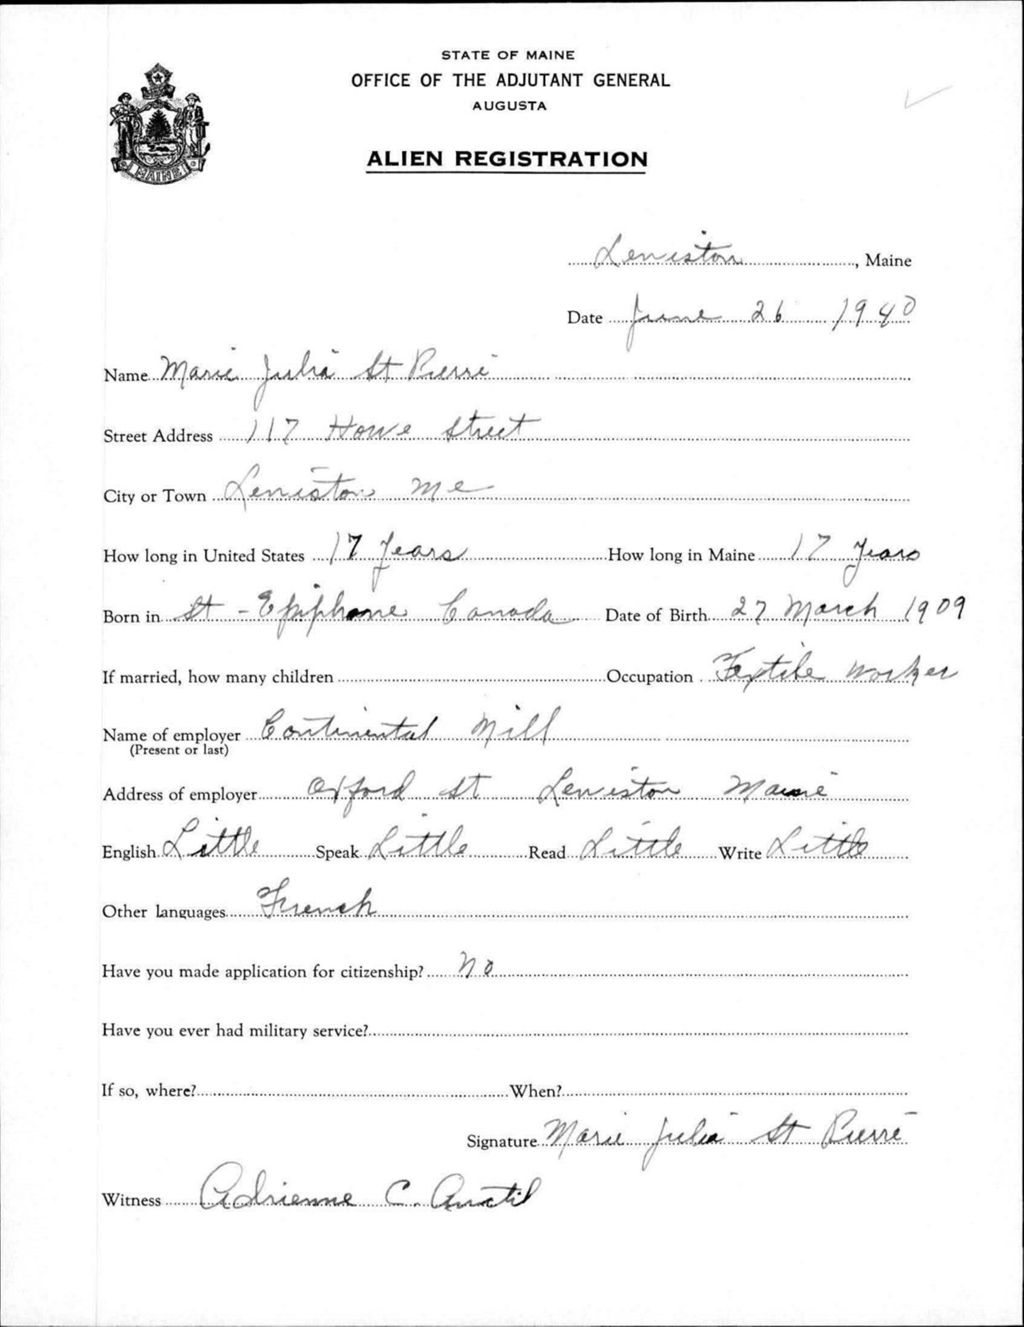 STATE OF MAINE
OFFICE OF THE ADJUTANT GENERAL
AUGUSTA
ALIEN REGISTRATION
MAINE
Lewiston, Maine
Date June 26 1940
Name Marie Julia St Pierre
Street Address 117 Howe Street
City or Town Lewiston Me
How long in United States 17 Years How long in Maine 17 Years
Born in St-Epiphane Canada Date of Birth 27 March 1909
If married, how many children Occupation Textile Worker
Name of employer Continental Mill
(Present or last)
Address of employer Oxford St Lewiston Maine
English Little Speak Little Read Little Write Little
Other languages French
Have you made application for citizenship? No
Have you ever had military service?
If so, where? When?
Signature Marie Julia St Pierre
Witness Adrienne C.